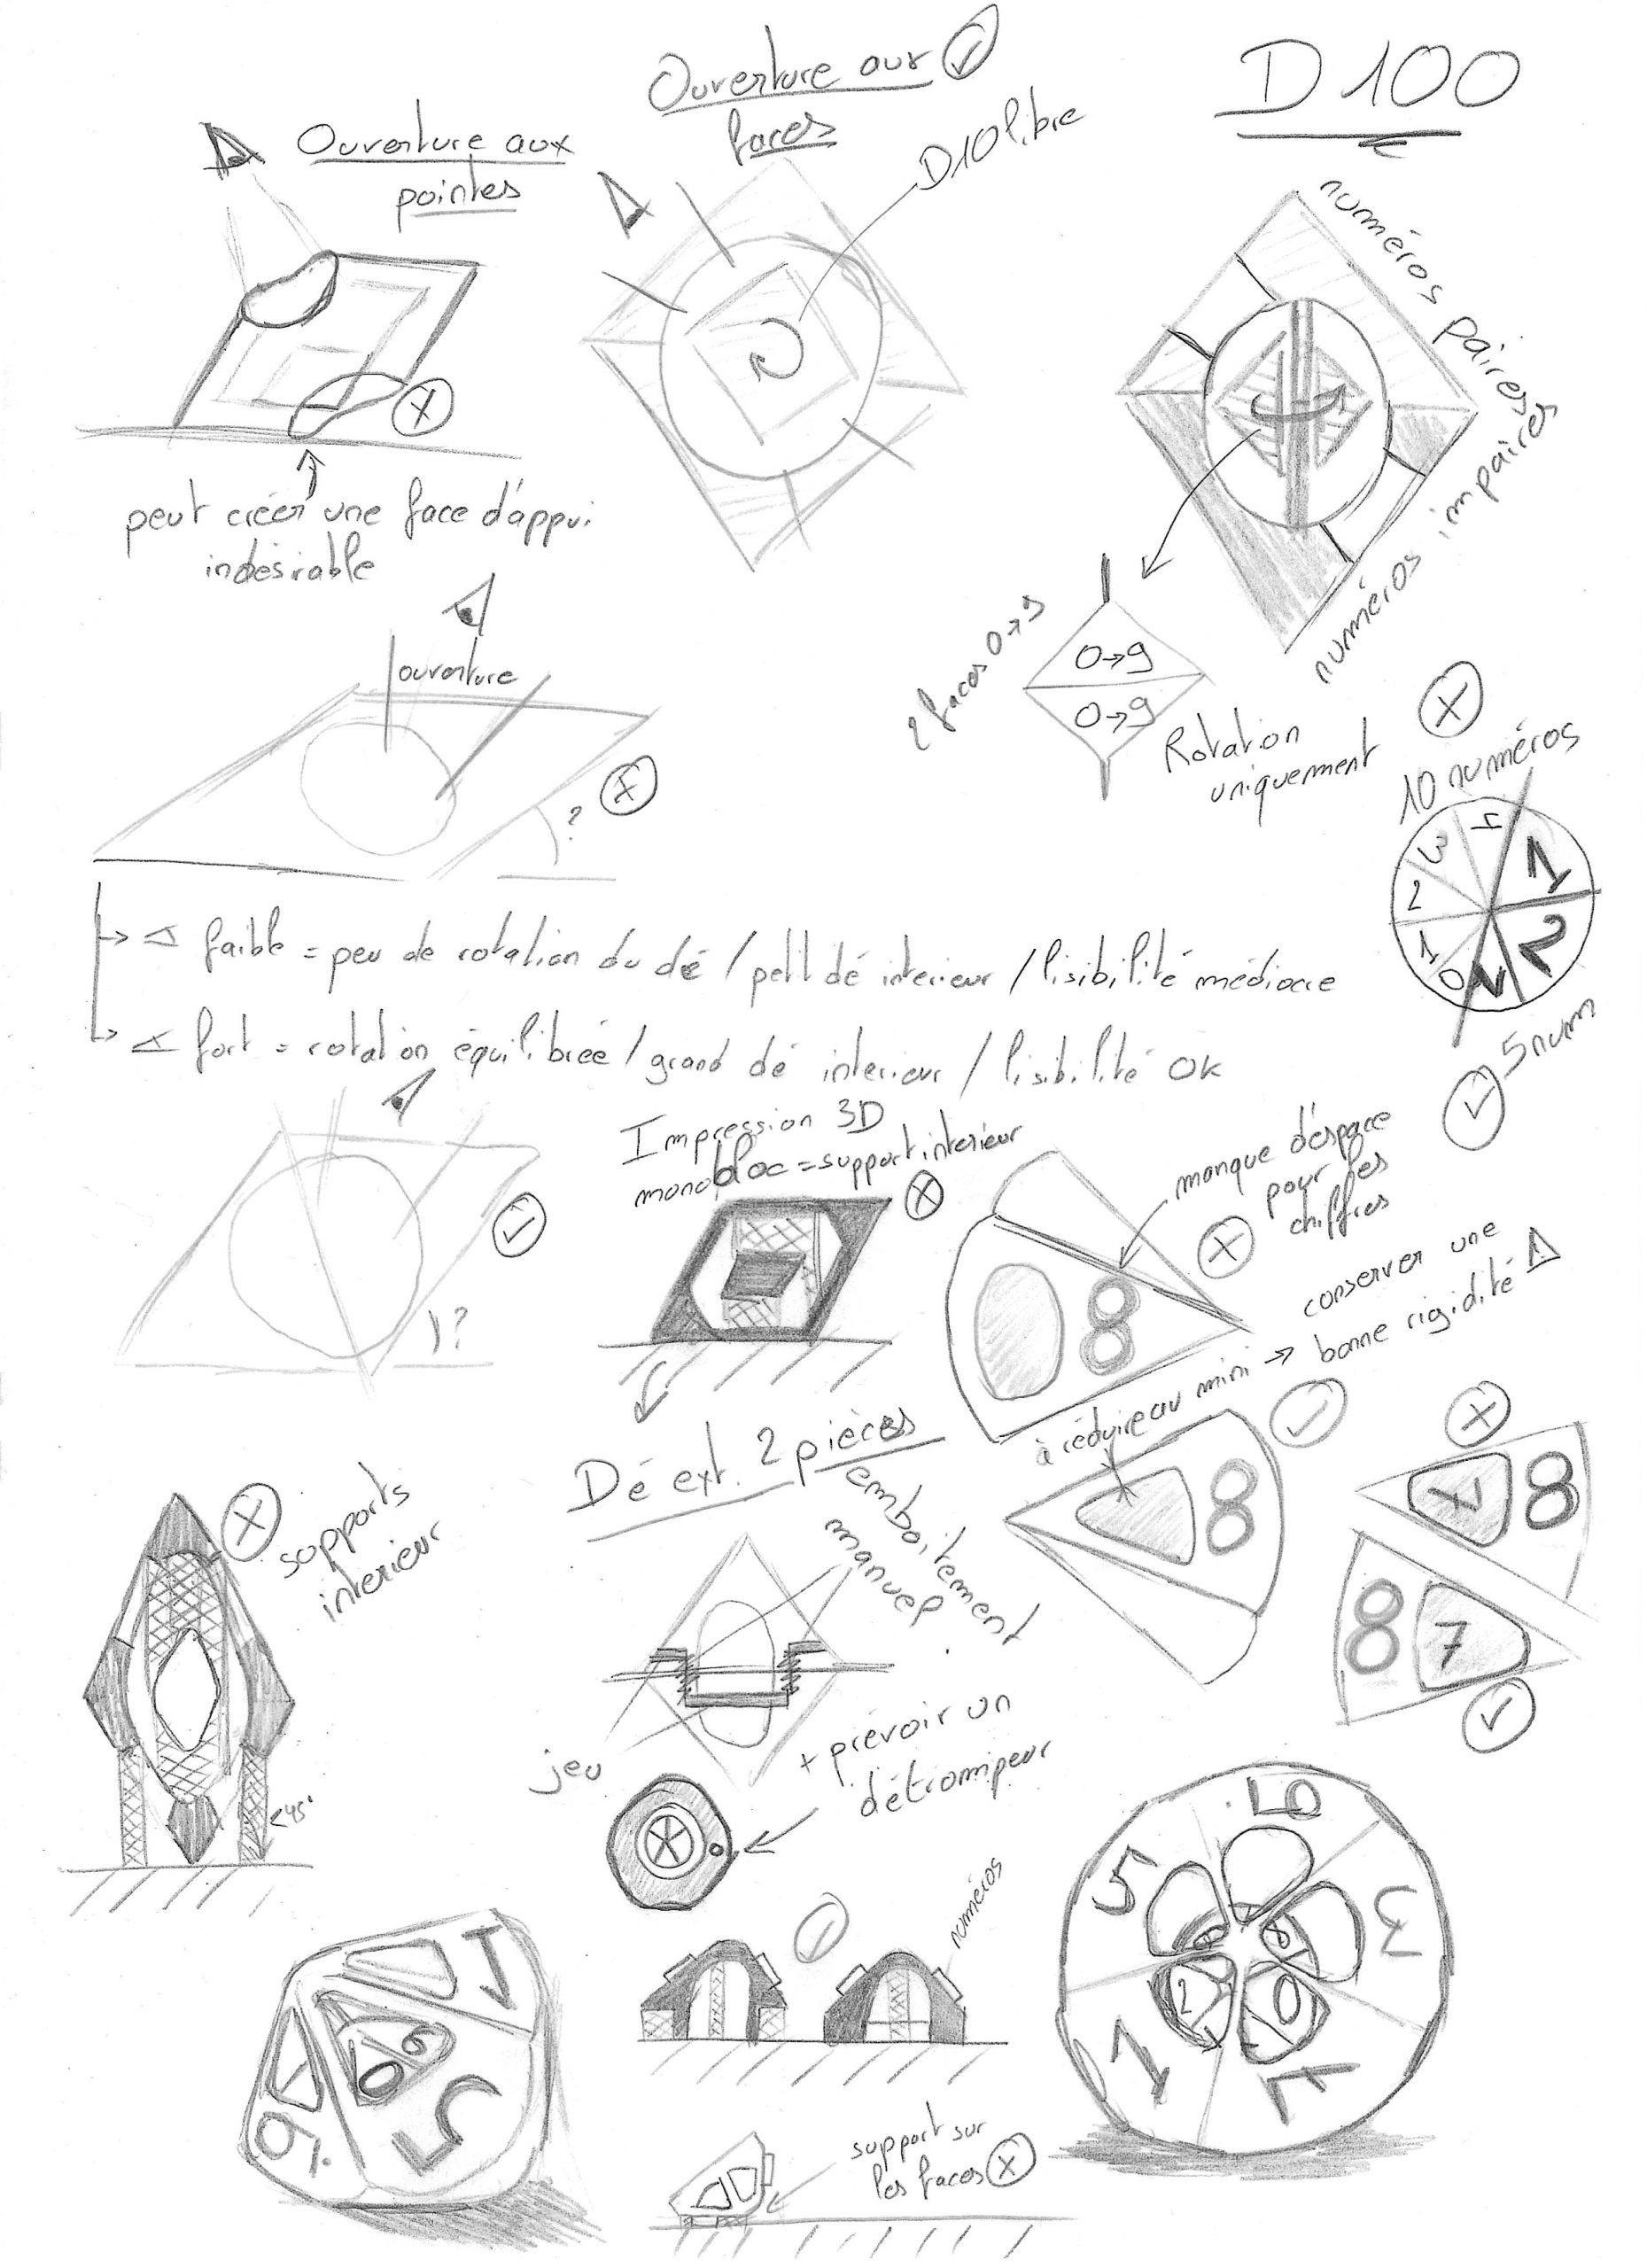 D100
Ouverture aux
faces
Ouverture aux
pointes
D10 libre
numéros paires
numéros impaires
peut créer une face d'appui
indésirable
ouverture
?
2 faces 0→9
0→9
0→9
Rotation
uniquement
10 numéros
1
3
2
1
0
1
2
5 num
∢ faible = peu de rotation du dé / petit dé interieur / lisibilité médiocre
∢ fort = rotation équilibrée / grand dé interieur / lisibilité OK
?
Impression 3D
monobloc = support interieur
manque d'espace
pour les
chiffres
8
à réduire au mini → conserver une
bonne rigidité
8
7
8
8
7
Dé ext. 2 pièces
emboitement
manuel
jeu
+ prévoir un
détrompeur
supports
interieur
<45°
numéros
support sur
les faces
1
6
9
5
6.
5
.6
3
1
7
2
8
0